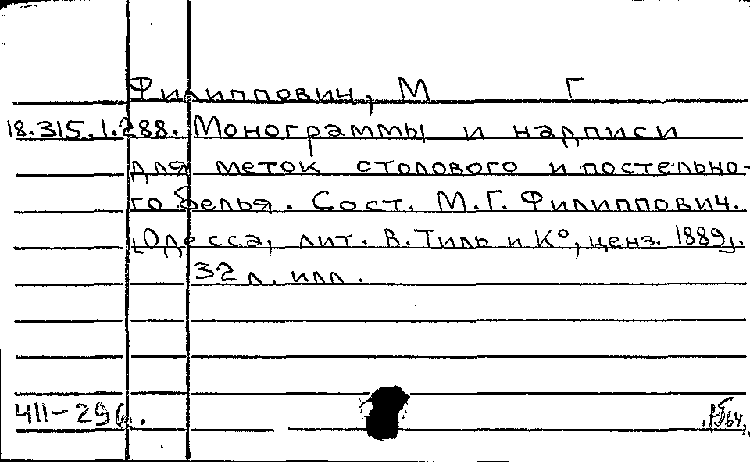 Филиппович, М Г
18.315.1.288. Монограммы и надписи
для меток столового и постельно-
го белья. Сост. М.Г. Филиппович.
[Одесса, лит. В. Тиль и К°, ценз. 1889].
32 л. илл.
411-29б.